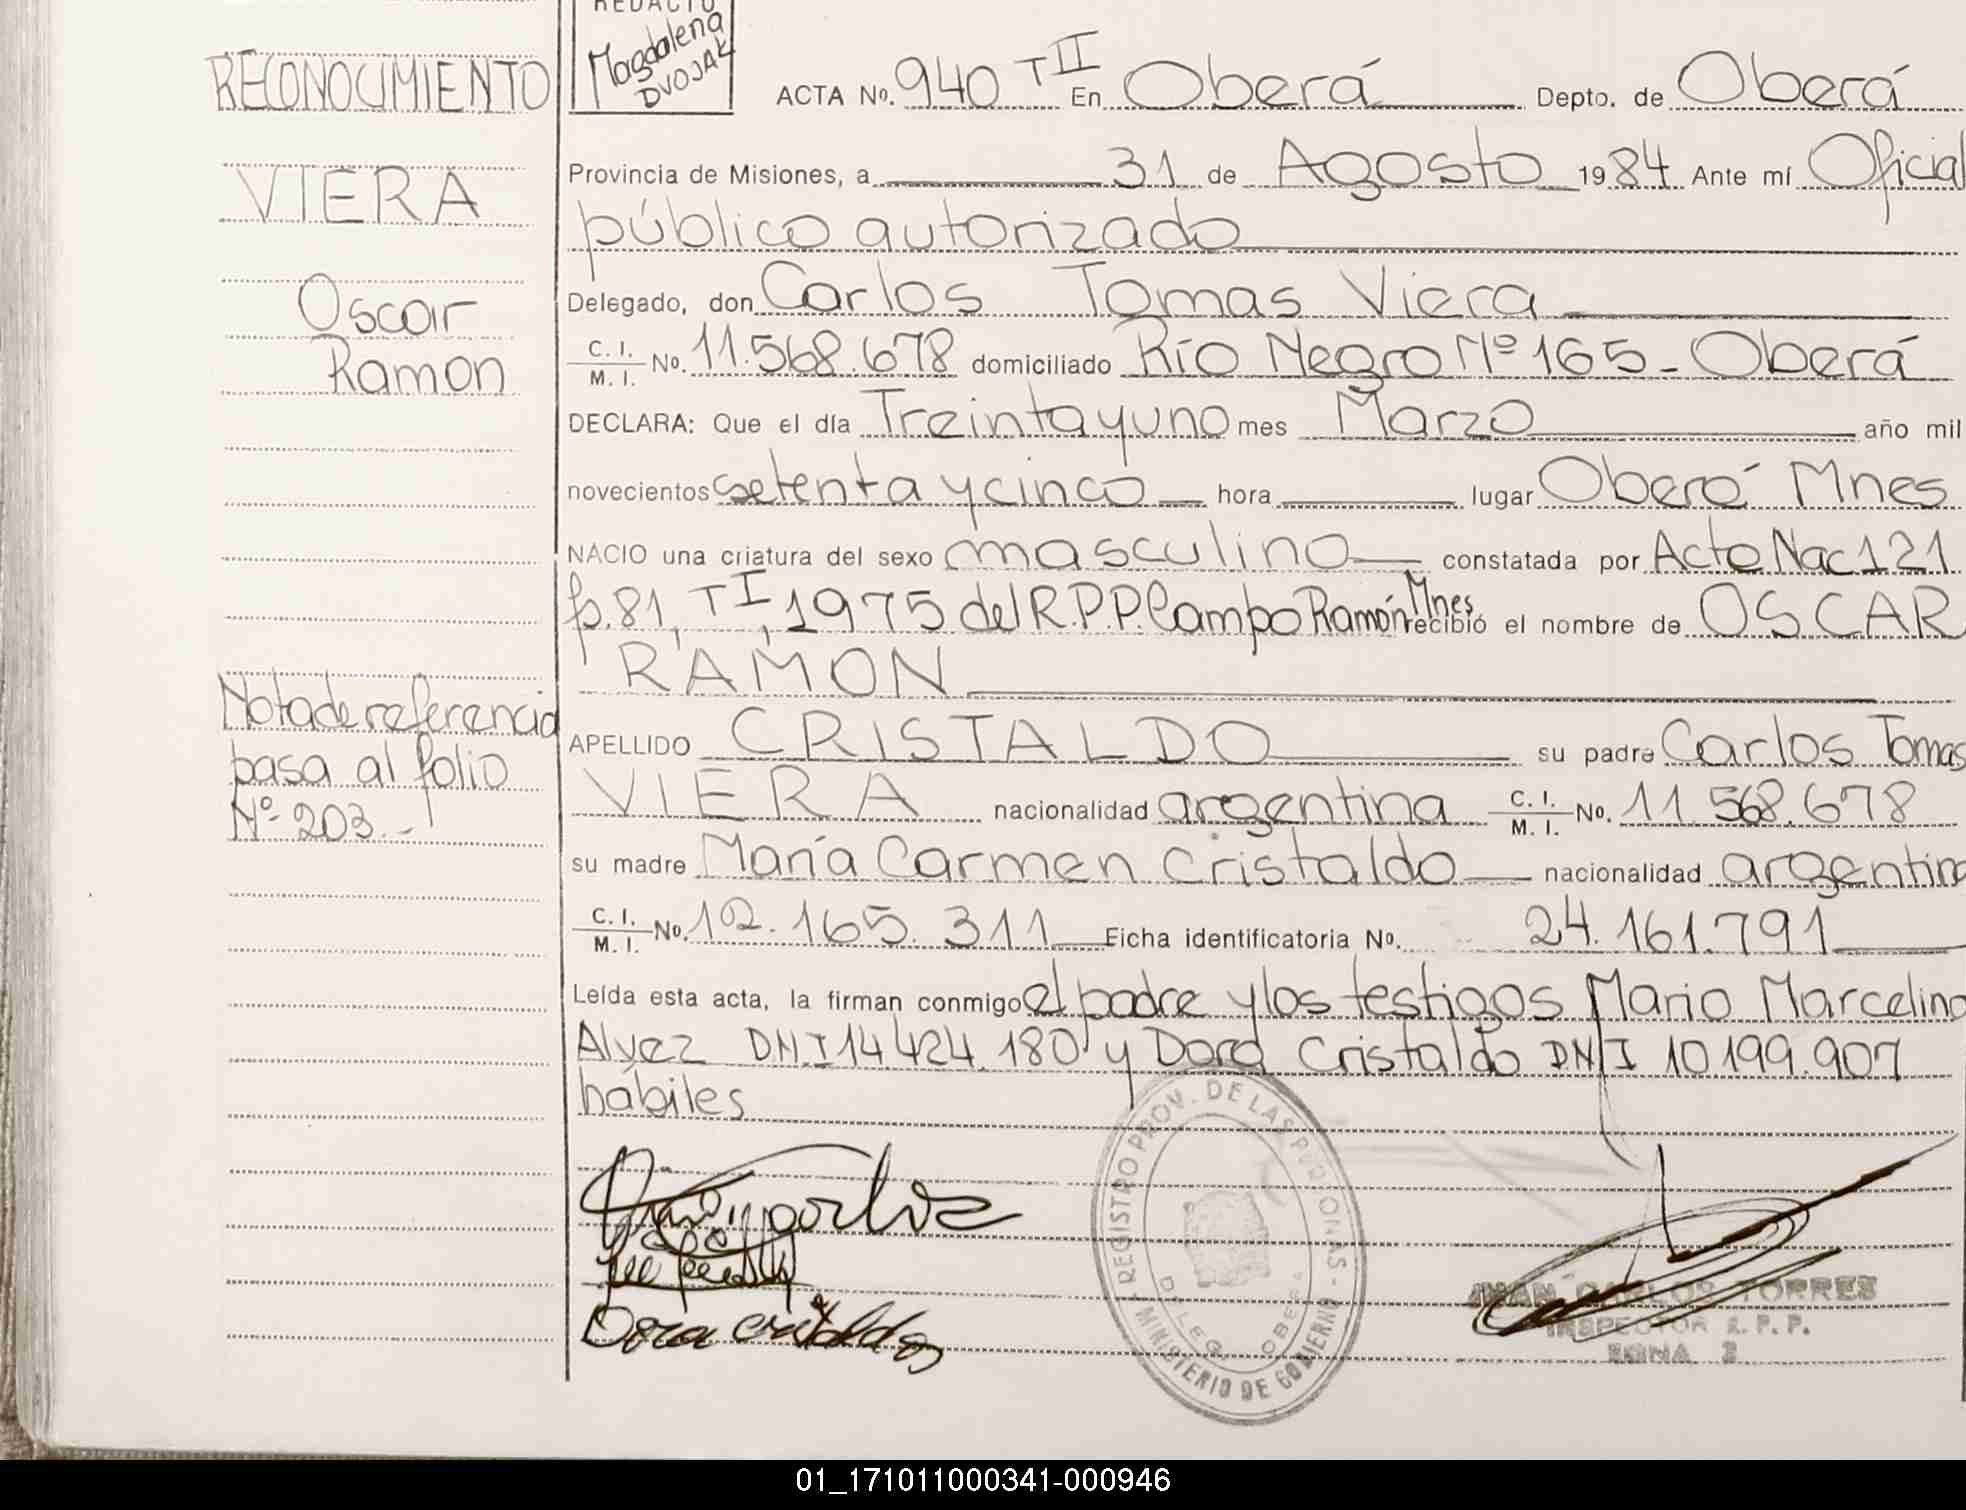 REDACTO
Magdalena
DVOJAK
RECONOCIMIENTO
VIERA
Oscar
Ramon
Nota de referencia
pasa al folio
Nº 203.-
ACTA No. 940 T II En Oberá Depto. de Oberá
Provincia de Misiones, a 31 de Agosto 1984 Ante mí Oficial
público autorizado
Delegado, don Carlos Tomas Viera
C. I. / M. I. No. 11.568.678 domiciliado Río Negro Nº 165 - Oberá
DECLARA: Que el día Treinta y uno mes Marzo año mil
novecientos setenta y cinco hora lugar Oberá Mnes
NACIO una criatura del sexo masculino constatada por Acta Nac 121
fo. 81, T I, 1975 del R.P.P. Campo Ramón Mnes recibió el nombre de OSCAR
RAMON
APELLIDO CRISTALDO su padre Carlos Tomas
VIERA nacionalidad argentina C. I. / M. I. No. 11.568.678
su madre María Carmen Cristaldo nacionalidad argentina
C. I. / M. I. No. 12.165.311 Ficha identificatoria No. 24.161.791
Leída esta acta, la firman conmigo el padre y los testigos Mario Marcelino
Alvez DNI 14.424.180 y Dora Cristaldo DNI 10.199.907
habiles
Dora Cristaldo
REGISTRO PROV. DE LAS PERSONAS - MINISTERIO DE GOBIERNO
DELEG. OBERA
JUAN CARLOS TORRES
INSPECTOR R. P. P.
ZONA 3
01_171011000341-000946